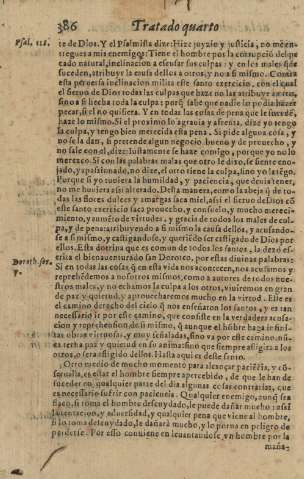 386 Tratado quarto
Psal. 118.
te de Dios. Y el Psalmista dize: Hize juyzio y justicia, no me en-
tregues a mis enemigos: Tiene el hombre por la corrupció del pe
cado natural, inclinacion a escusar sus culpas: y en los males q̃ le
suceden, atribuyr la causa dellos a otros, y no a si mismo. Contra
esta peruersa inclinacion mira este santo exercicio, con el qual
el sieruo de Dios todas las culpas que haze no las atribuye a otros,
sino a si hecha toda la culpa: porq̃ sabe que nadie lo podia hazer
pecar, si el no quisiera. Y en todas las cosas de pena que le suceden,
haze lo mismo. Si el proximo lo agrauia y afrenta, dize yo tengo
la culpa, y tengo bien merecida esta pena. Si pide alguna cosa, y
no se la dan, si pretende algun negocio, bueno y de prouecho, y
no sale con el, dize: justamente se haze comigo, porque yo no lo
merezco. Si con las palabras malas que otro le dixo, se siente eno-
jado, y apassionado, no dize, el otro tiene la culpa, sino yo la tẽgo.
Porque si yo tuuiera la humildad, y paciencia, que deuia tener,
no me huuiera assi alterado. Desta manera, como la abeja q̃ de to-
das las flores dulces y amargas saca miel, assi el sieruo de Dios cõ
este santo exercicio saca prouecho, y consuelo, y mucho mereci-
miento, y aumẽto de virtudes, y gracia de todos los males de cul-
pa, y de pena: atribuyendo a si mismo la causa dellos, y acusando-
se a si mismo, y castigandose, y queriẽdo ser castigado de Dios por
ellos. Esta dotrina que es comun de todos los santos, la dexó es-
crita el bienauenturado san Doroteo, por estas diuinas palabras:
Doroth. ser.
7.
Si en todas las cosas q̃ en esta vida nos acontecen, nos acusamos y
reprehẽdemos a nosotros mismos, como a autores de todos nue-
stros males, y no echamos la culpa a los otros, viuiremos en gran
de paz y quietud, y aprouecharemos mucho en la virtud. Este es
el camino derecho del cielo q̃ nos enseñaron los santos, y es tan
necessario ir por este camino, que consiste en la verdadera acusa-
cion y reprehension de si mismo, q̃ aunque el hõbre haga infini-
tas obras virtuosas, y muy señaladas, sino va por este camino nũ-
ca terna paz y quietud en su anima: sino que siempre afligira a los
otros, o sera afligido dellos. Hasta aqui es deste santo.
Otro medio de mucho momento para alcançar paciẽcia, y cõ-
seruarla, es estar el hombre siempre apercebido, de que le han de
suceder en qualquier parte del dia algunas cosas contrarias, que
es necessario sufrir con paciencia. Qualquier enemigo, aunq̃ sea
flaco, si toma al hombre descuydado, le puede dañar mucho: assi
la tentacion, y aduersidad, y qualquier pena que viene al hombre,
si lo toma descuydado, le dañará mucho, y lo porna en peligro de
perderse. Por esso conuiene en leuantandose vn hombre por la
maña-